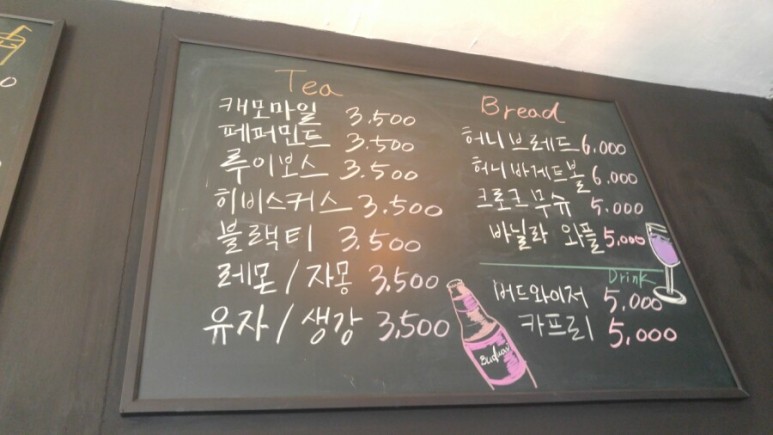 Tea
캐모마일 3.500
페퍼민트 3.500
루이보스 3.500
히비스커스 3.500
블랙티 3.500
레몬/자몽 3,500
유자/생강 3,500
Bread
허니브레드 6.000
허니바게트볼 6.000
크로크무슈 5.000
바닐라 와플 5,000
Drink
버드와이저 5,000
카프리 5,000